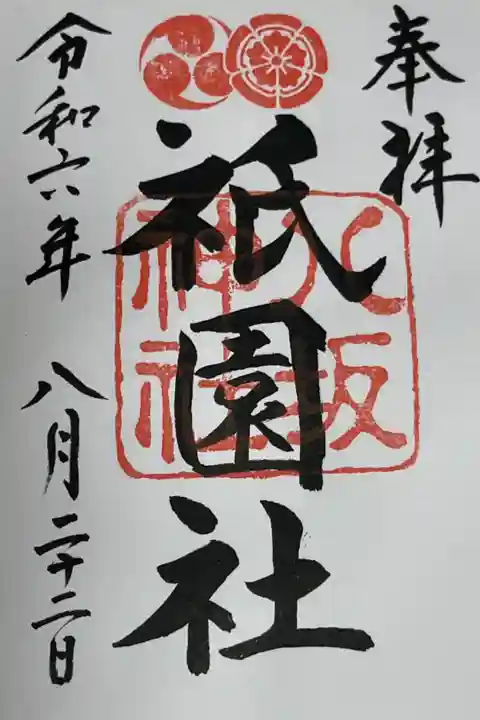 奉拝
祇園社
八坂
神社
令和六年 八月二十二日